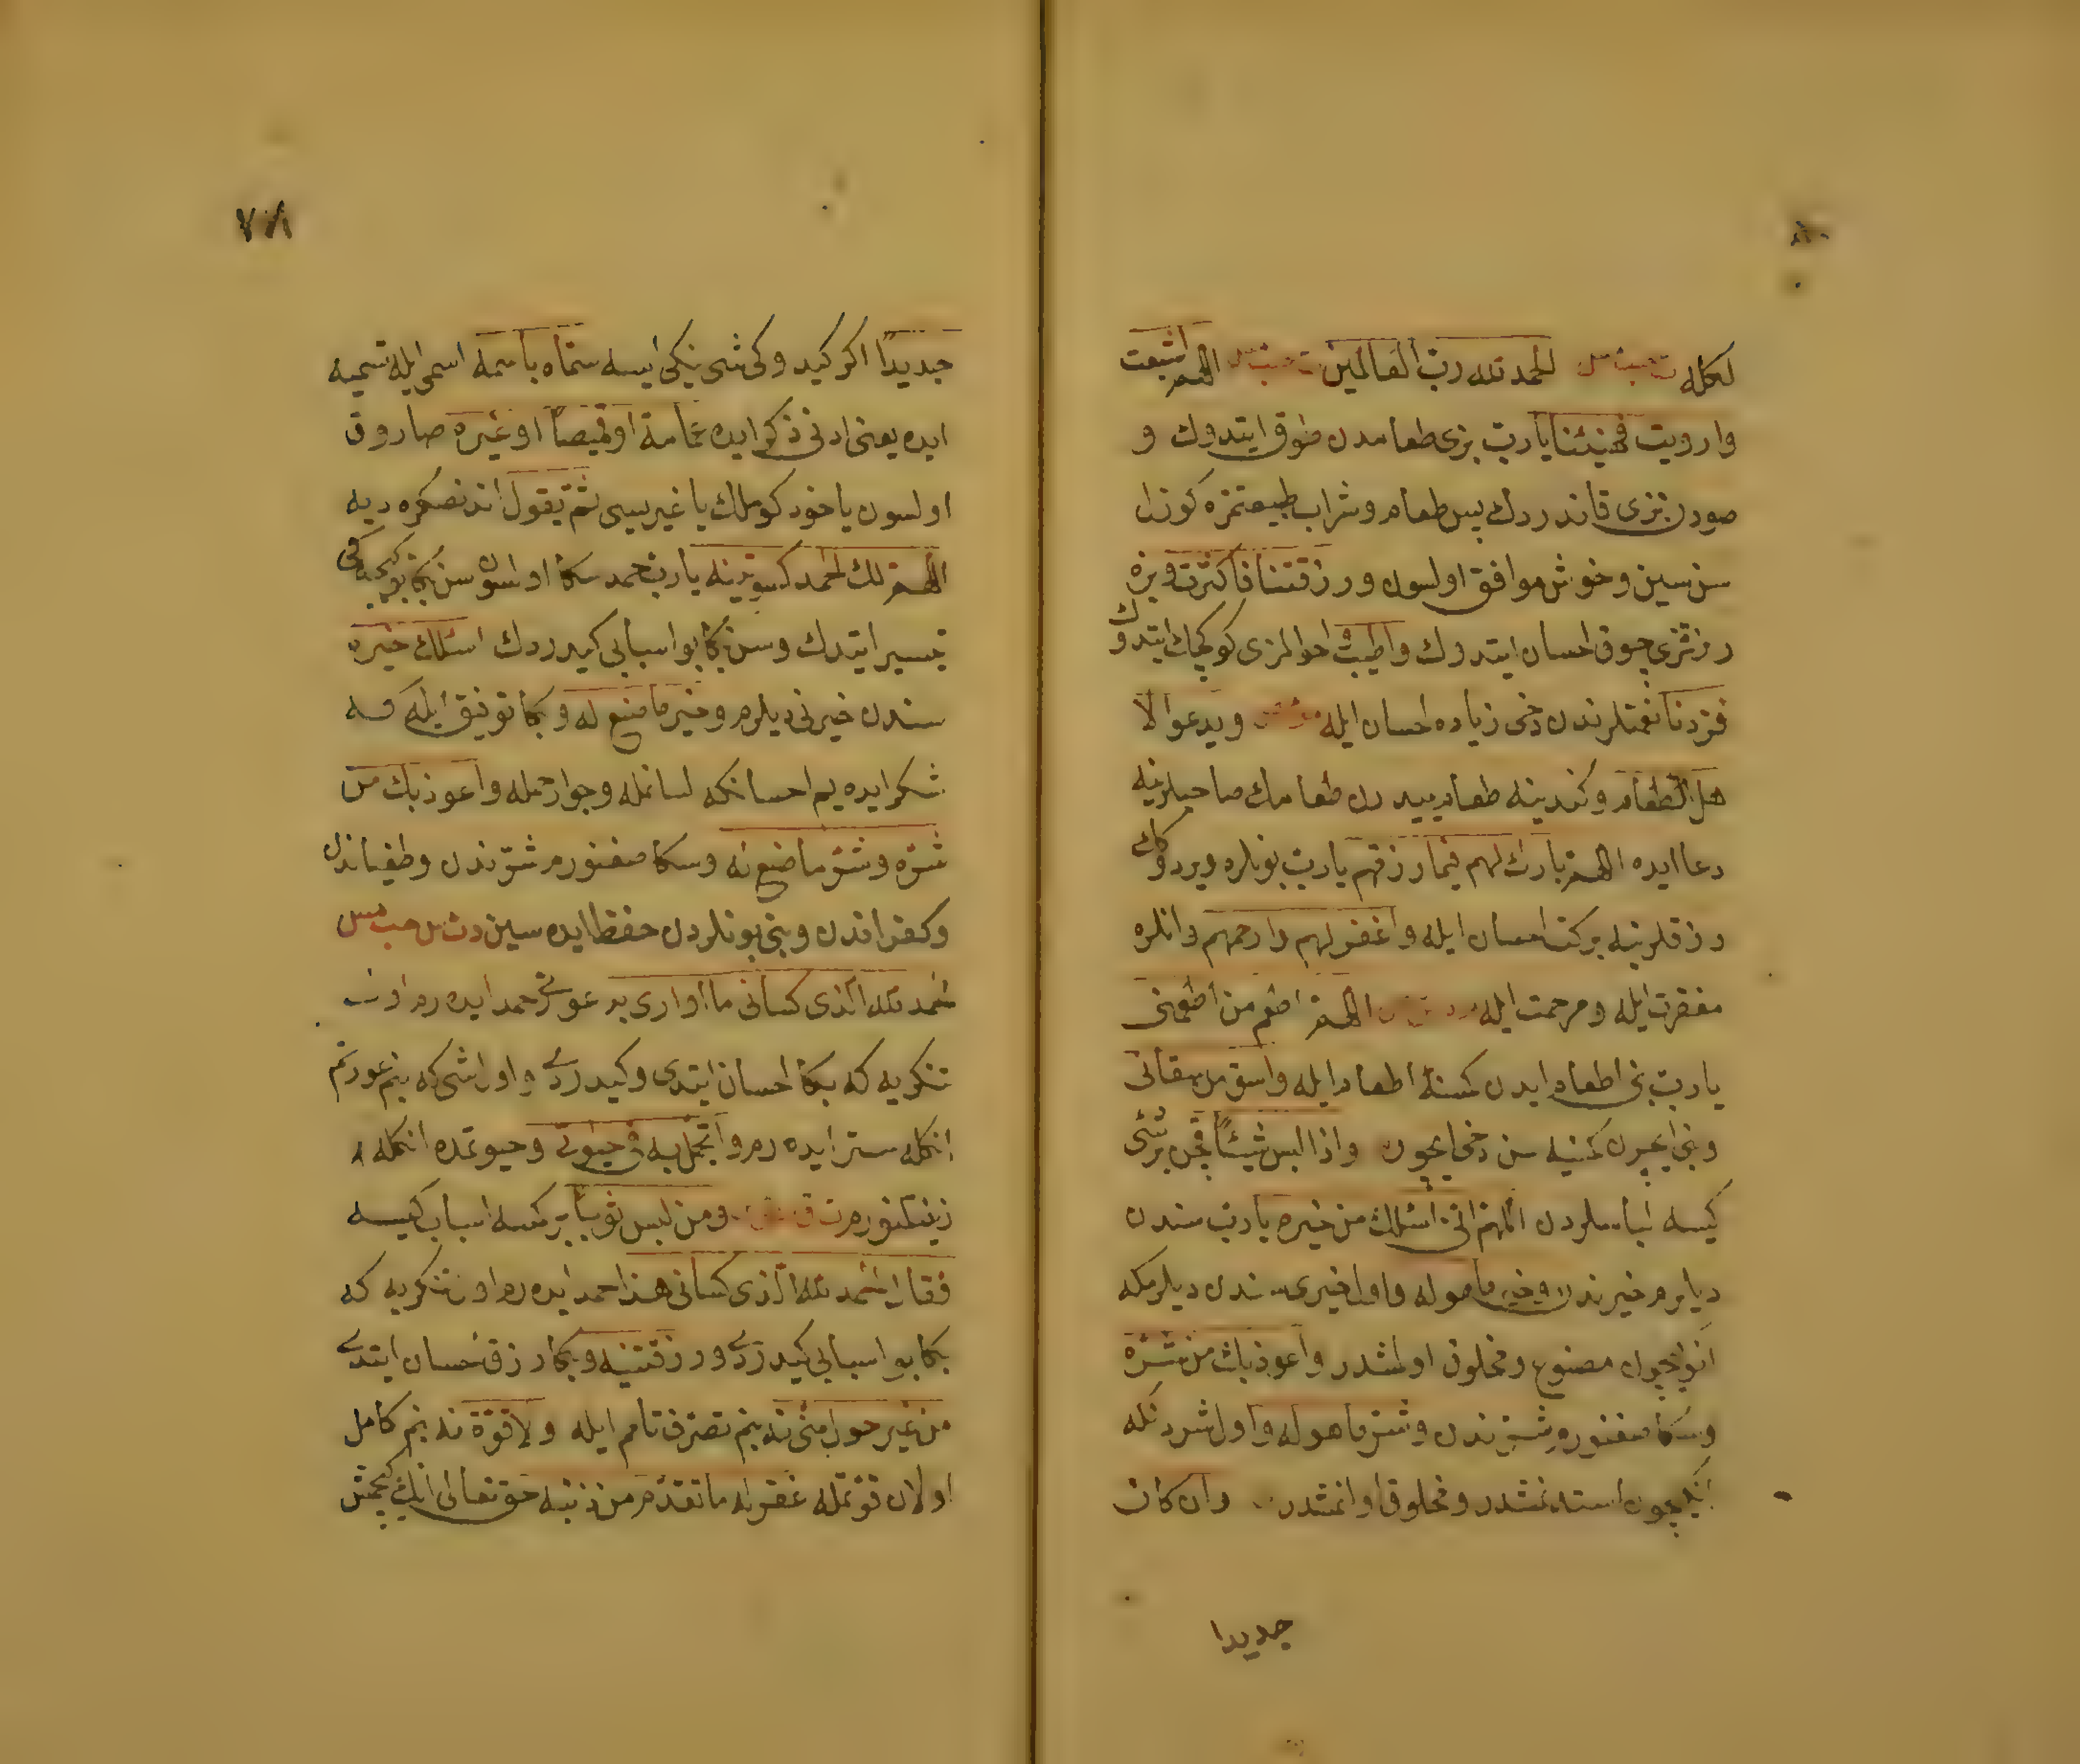 الحمد لله رب العالمين اللهم اشبعت
وارويت فهنئنا يا رب بزى طعامدن طوق ايتدوك و
صودن بزى قاندردك پس طعام و شراب طبيعتمزه كوزل
سن سين و خوش موافق اولسون ورزقتنا فاكثرت وبزه
رزقمزى چوق احسان ايتدوك واطبت احوالمزى كوكچك ايتدوك
فزدنا نعمتلرندن دخى زياده احسان ايله ويدعو لا
هل الطعام وكندينه طعام ييدرن طعامك صاحبلرينه
دعا ايده اللهم بارك لهم فيما رزقتهم يا رب بونلره ويردوكك
رزقلرينه بركت احسان ايله واغفر لهم وارحمهم وانلره
مغفرت ايله ومرحمت ايله اللهم اطعم من اطعمنى
يا رب بنى اطعام ايدن كمسنه اطعام ايله واسق من سقانى
وبنى ايچرن كمسنيه سن دخى ايچور واذا لبس شيئا قچن بر شى
كيسه لباسلردن اللهم انى اسئلك من خيره يا رب سندن
ديلرم خيرندن وخير ما هو له واول خيرى سندن ديلرمكه
انوكچون مصنوع ومخلوق اولمشدر واعوذ بك من شره
وسكا صغنورم شرندن وشر ما هو له واول شردنكه
انكچون ومخلوق اولنمشدر وان كان
جديدا
٧٨
جديدا اكر كيد وكى شى يكى ايسه سماه باسمه اسمى ايله تسميه
ايده يعنى ادنى ذكر ايده عمامة او قميصا او غيره صاروق
اولسون ياخود كوملك يا غيريسى ثم يقول اندنصكره ديه
اللهم لك الحمد كسوتنيه يا رب حمد سكا اولسون سن بكا بو كيجكى
تيسير ايتدك وسن بكا بو اسبابى كيدردك اسئلك خيره
سندن خيرنى ديلرم وخير ما صنع له وبكا توفيق ايله كه
شكر ايده يم احسانكه لسانمله وجوارحمله واعوذ بك من
شره وشر ما صنع له وسكا صغنورم شرندن وطغياندن
وكفراندن وبنى بونلردن حفظ ايده سين د ت س حب مس
الحمد لله الذى كسانى ما اوارى به عورتى حمد ايده رم اول
تنكريه كه بكا احسان ايتدى وكيدردى واول شى كه بنم عورتم
انكله ستر ايده رم واتجمل به فى حيوتى وحيوتمده انكله
زينتلنورم ت ق ومن لبس ثوبا بر كمسه اسباب كيسه
فقال الحمد لله الذى كسانى هذا حمد ايده رم اول تنكريه كه
بكا بو اسبابى كيدردى ورزقنيه وبكا رزق احسان ايتدى
من غير حول منى بنم تصرف تامم ايله ولا قوة بنم كامل
اولان قوتمله غفر له ما تقدم من ذنبه حق تعالى انك كچمش